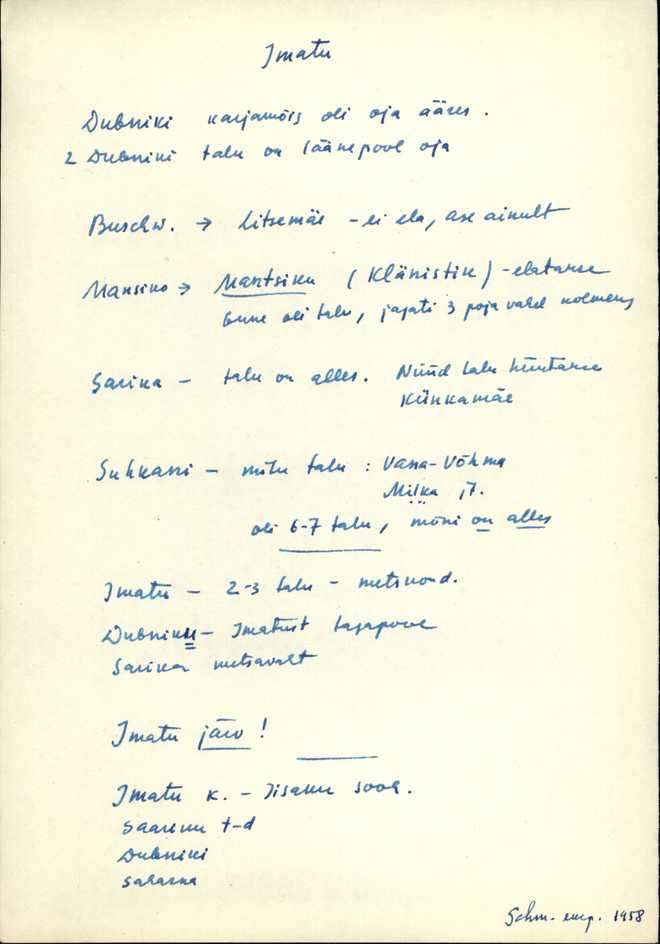 Imatu
Dubniki karjamõis oli oja ääres.
2 Dubniki talu on läänepool oja
Buschw. → Litsemäe - ei ela, ase ainult
Mansiko → Mantsiku (Klänistik) - elatakse
enne oli talu, jagati 3 poja vahel kolmeks
Sarika - talu on alles. Nüüd talu hüütakse
Künkamäe
Suhkassi - mitu talu : Vana-Võhma
Milka j.t.
oli 6-7 talu, mõni on alles
Imatu - 2-3 talu - metsvond.
Dubniku - Imatust tagapool
Sarika metsavaht
Imatu järv !
Imatu k. - Iisaku sool.
Saariku t-d
Dubniki
Saharna
Schm. - eksp. 1958